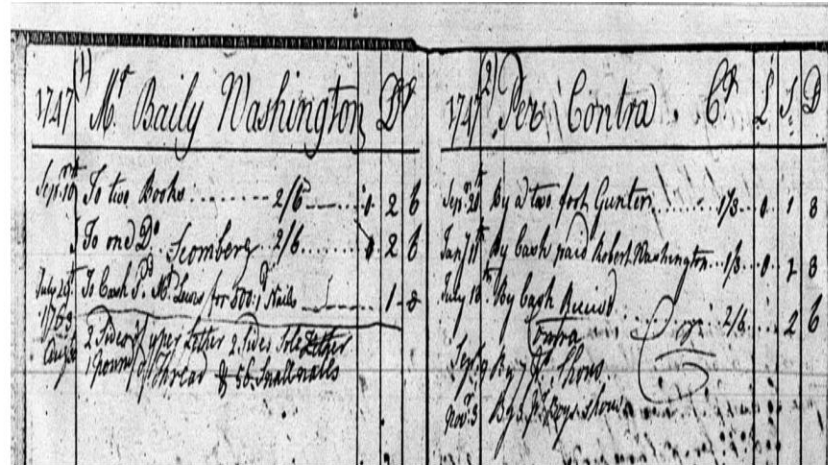 1747 (1) Mr Baily Washington Dr
Sepr 10th To two Books 2/6 0 2 6
To one Do Scomberg 2/6 0 2 6
July 20th To Cash Pd Mr Lewis for 500 Nails 1 8
1763
2 Sides uper Lether 2 Sides Sole Lether
1 Pound of Thread & 56 Smallnalls
1747 (2) Per Contra Cr L S D
Sepr 20th By a two foot Gunter 1/8 0 1 8
Jany 11th By Cash paid Robert Washington 1/8 0 1 8
July 18th By Cash Receivd 2/6 2 6
Contra
Sepr 9 By 7 Pr Shous
Novr 3 By 3 Pr Boys shous